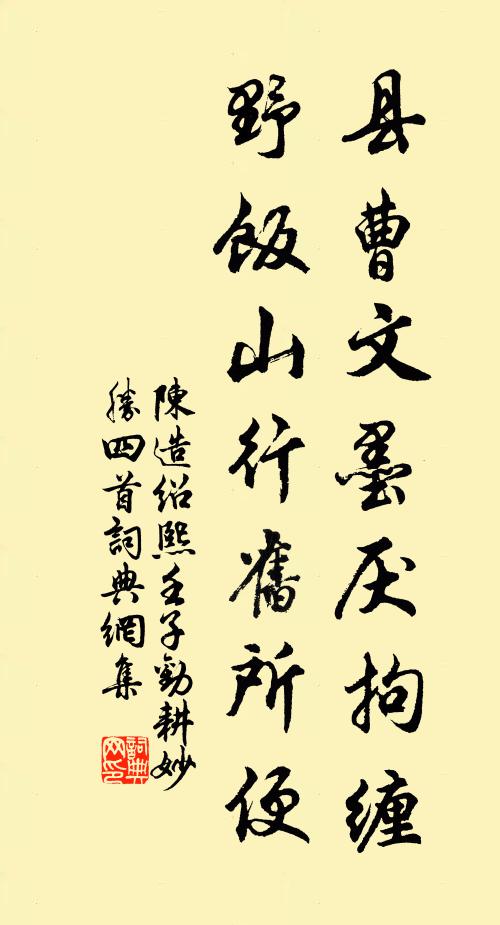 县曹文墨厌拘缠
野飯山行舊所便
陳造绍熙壬子勸耕妙
勝四首詞典網集
詞典
网印